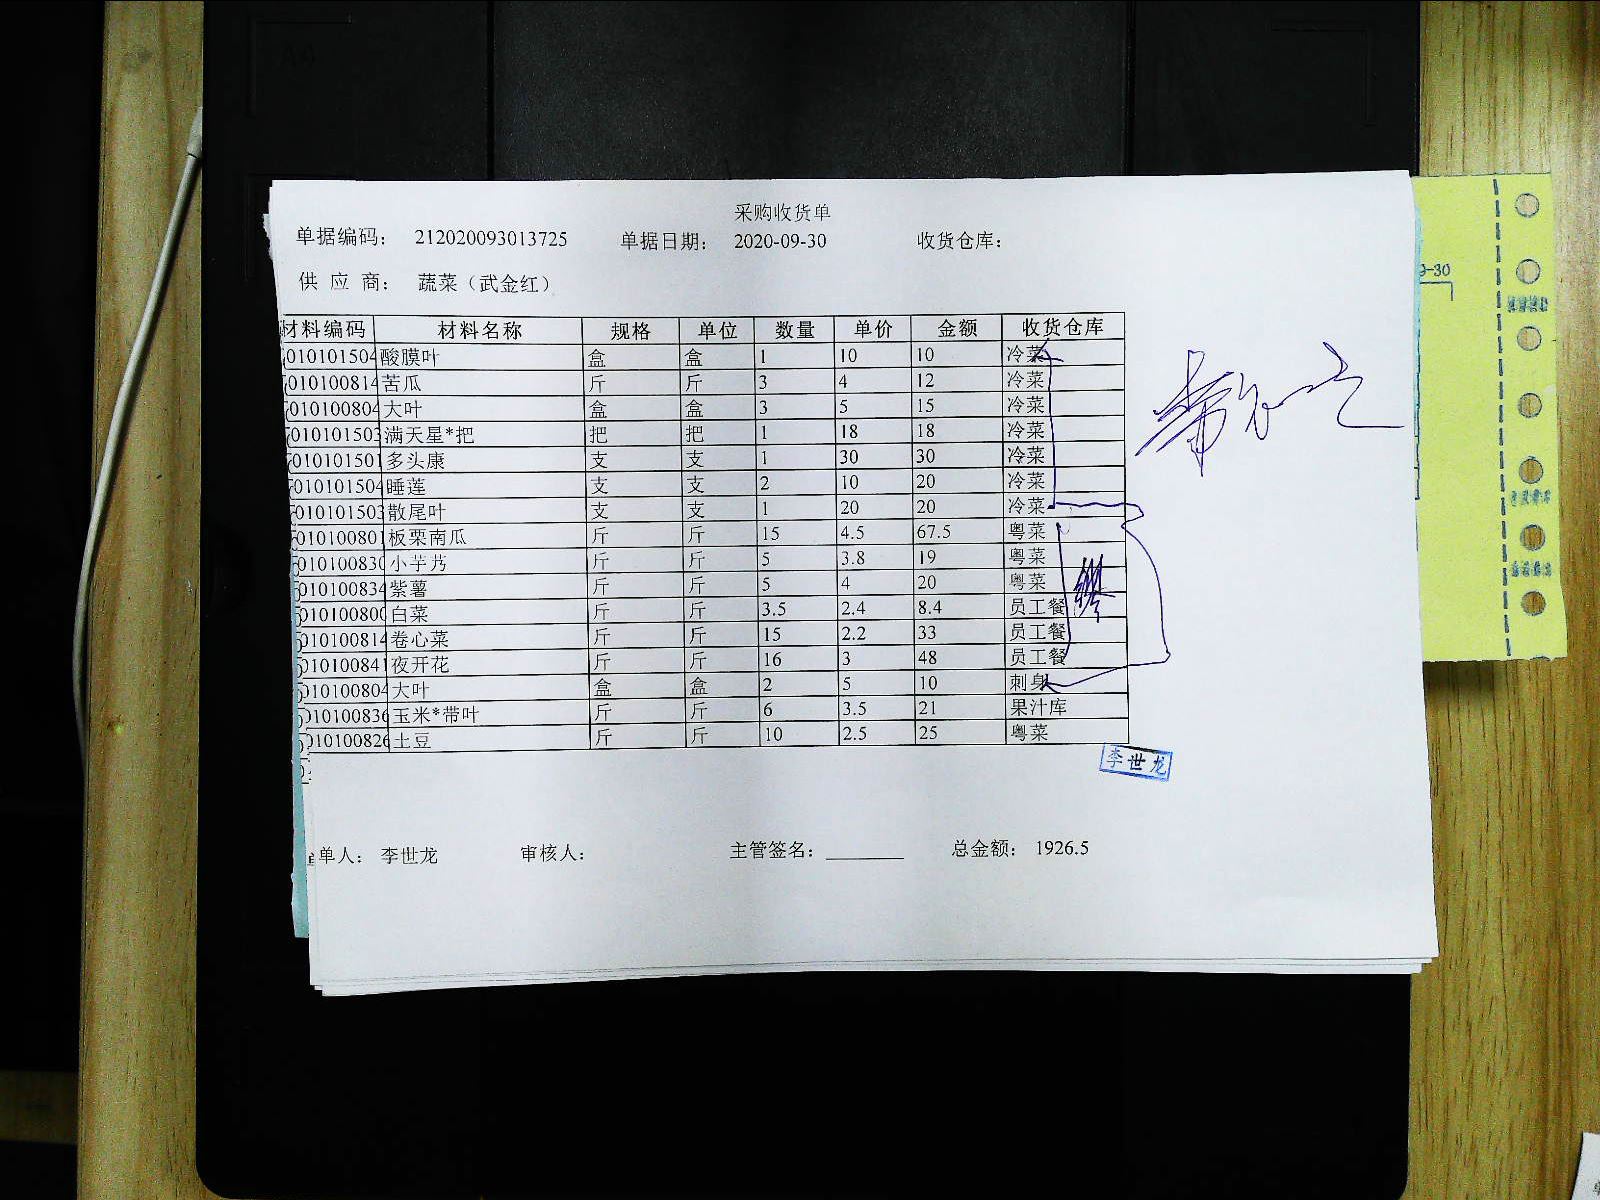 采购收货单
单据编码： 212020093013725 单据日期： 2020-09-30 收货仓库：
供 应 商： 蔬菜（武金红）
材料编码 材料名称 规格 单位 数量 单价 金额 收货仓库
010101504 酸膜叶 盒 盒 1 10 10 冷菜
010100814 苦瓜 斤 斤 3 4 12 冷菜
010100804 大叶 盒 盒 3 5 15 冷菜
010101503 满天星*把 把 把 1 18 18 冷菜
010101501 多头康 支 支 1 30 30 冷菜
010101504 睡莲 支 支 2 10 20 冷菜
010101503 散尾叶 支 支 1 20 20 冷菜
010100801 板栗南瓜 斤 斤 15 4.5 67.5 粤菜
010100830 小芋艿 斤 斤 5 3.8 19 粤菜
010100834 紫薯 斤 斤 5 4 20 粤菜
010100800 白菜 斤 斤 3.5 2.4 8.4 员工餐
010100814 卷心菜 斤 斤 15 2.2 33 员工餐
010100841 夜开花 斤 斤 16 3 48 员工餐
010100804 大叶 盒 盒 2 5 10 刺身
010100836 玉米*带叶 斤 斤 6 3.5 21 果汁库
010100826 土豆 斤 斤 10 2.5 25 粤菜
李世龙
单人： 李世龙 审核人： 主管签名： 总金额： 1926.5
9-30